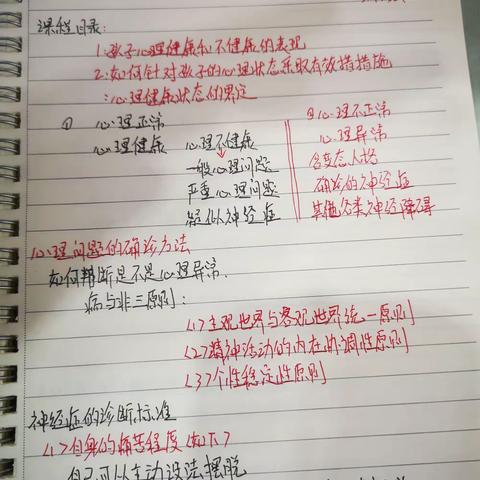 课程目录:
1.孩子心理健康和不健康的表现
2.如何针对孩子的心理状态采取有效措措施
:心理健康状态的界定
① 心理正常
心理健康
心理不健康
一般心理问题
严重心理问题
疑似神经症
②心理不正常
心理异常
含变态人格
确诊的神经症
其他各类神经障碍
心理问题的确诊方法
如何判断是不是心理异常.
病与非三原则:
<1>主观世界与客观世界统一原则
<2>精神活动的内在协调性原则
<3>个性稳定性原则
神经症的诊断标准
<1>自身的痛苦程度<如下>
自己可以主动设法摆脱